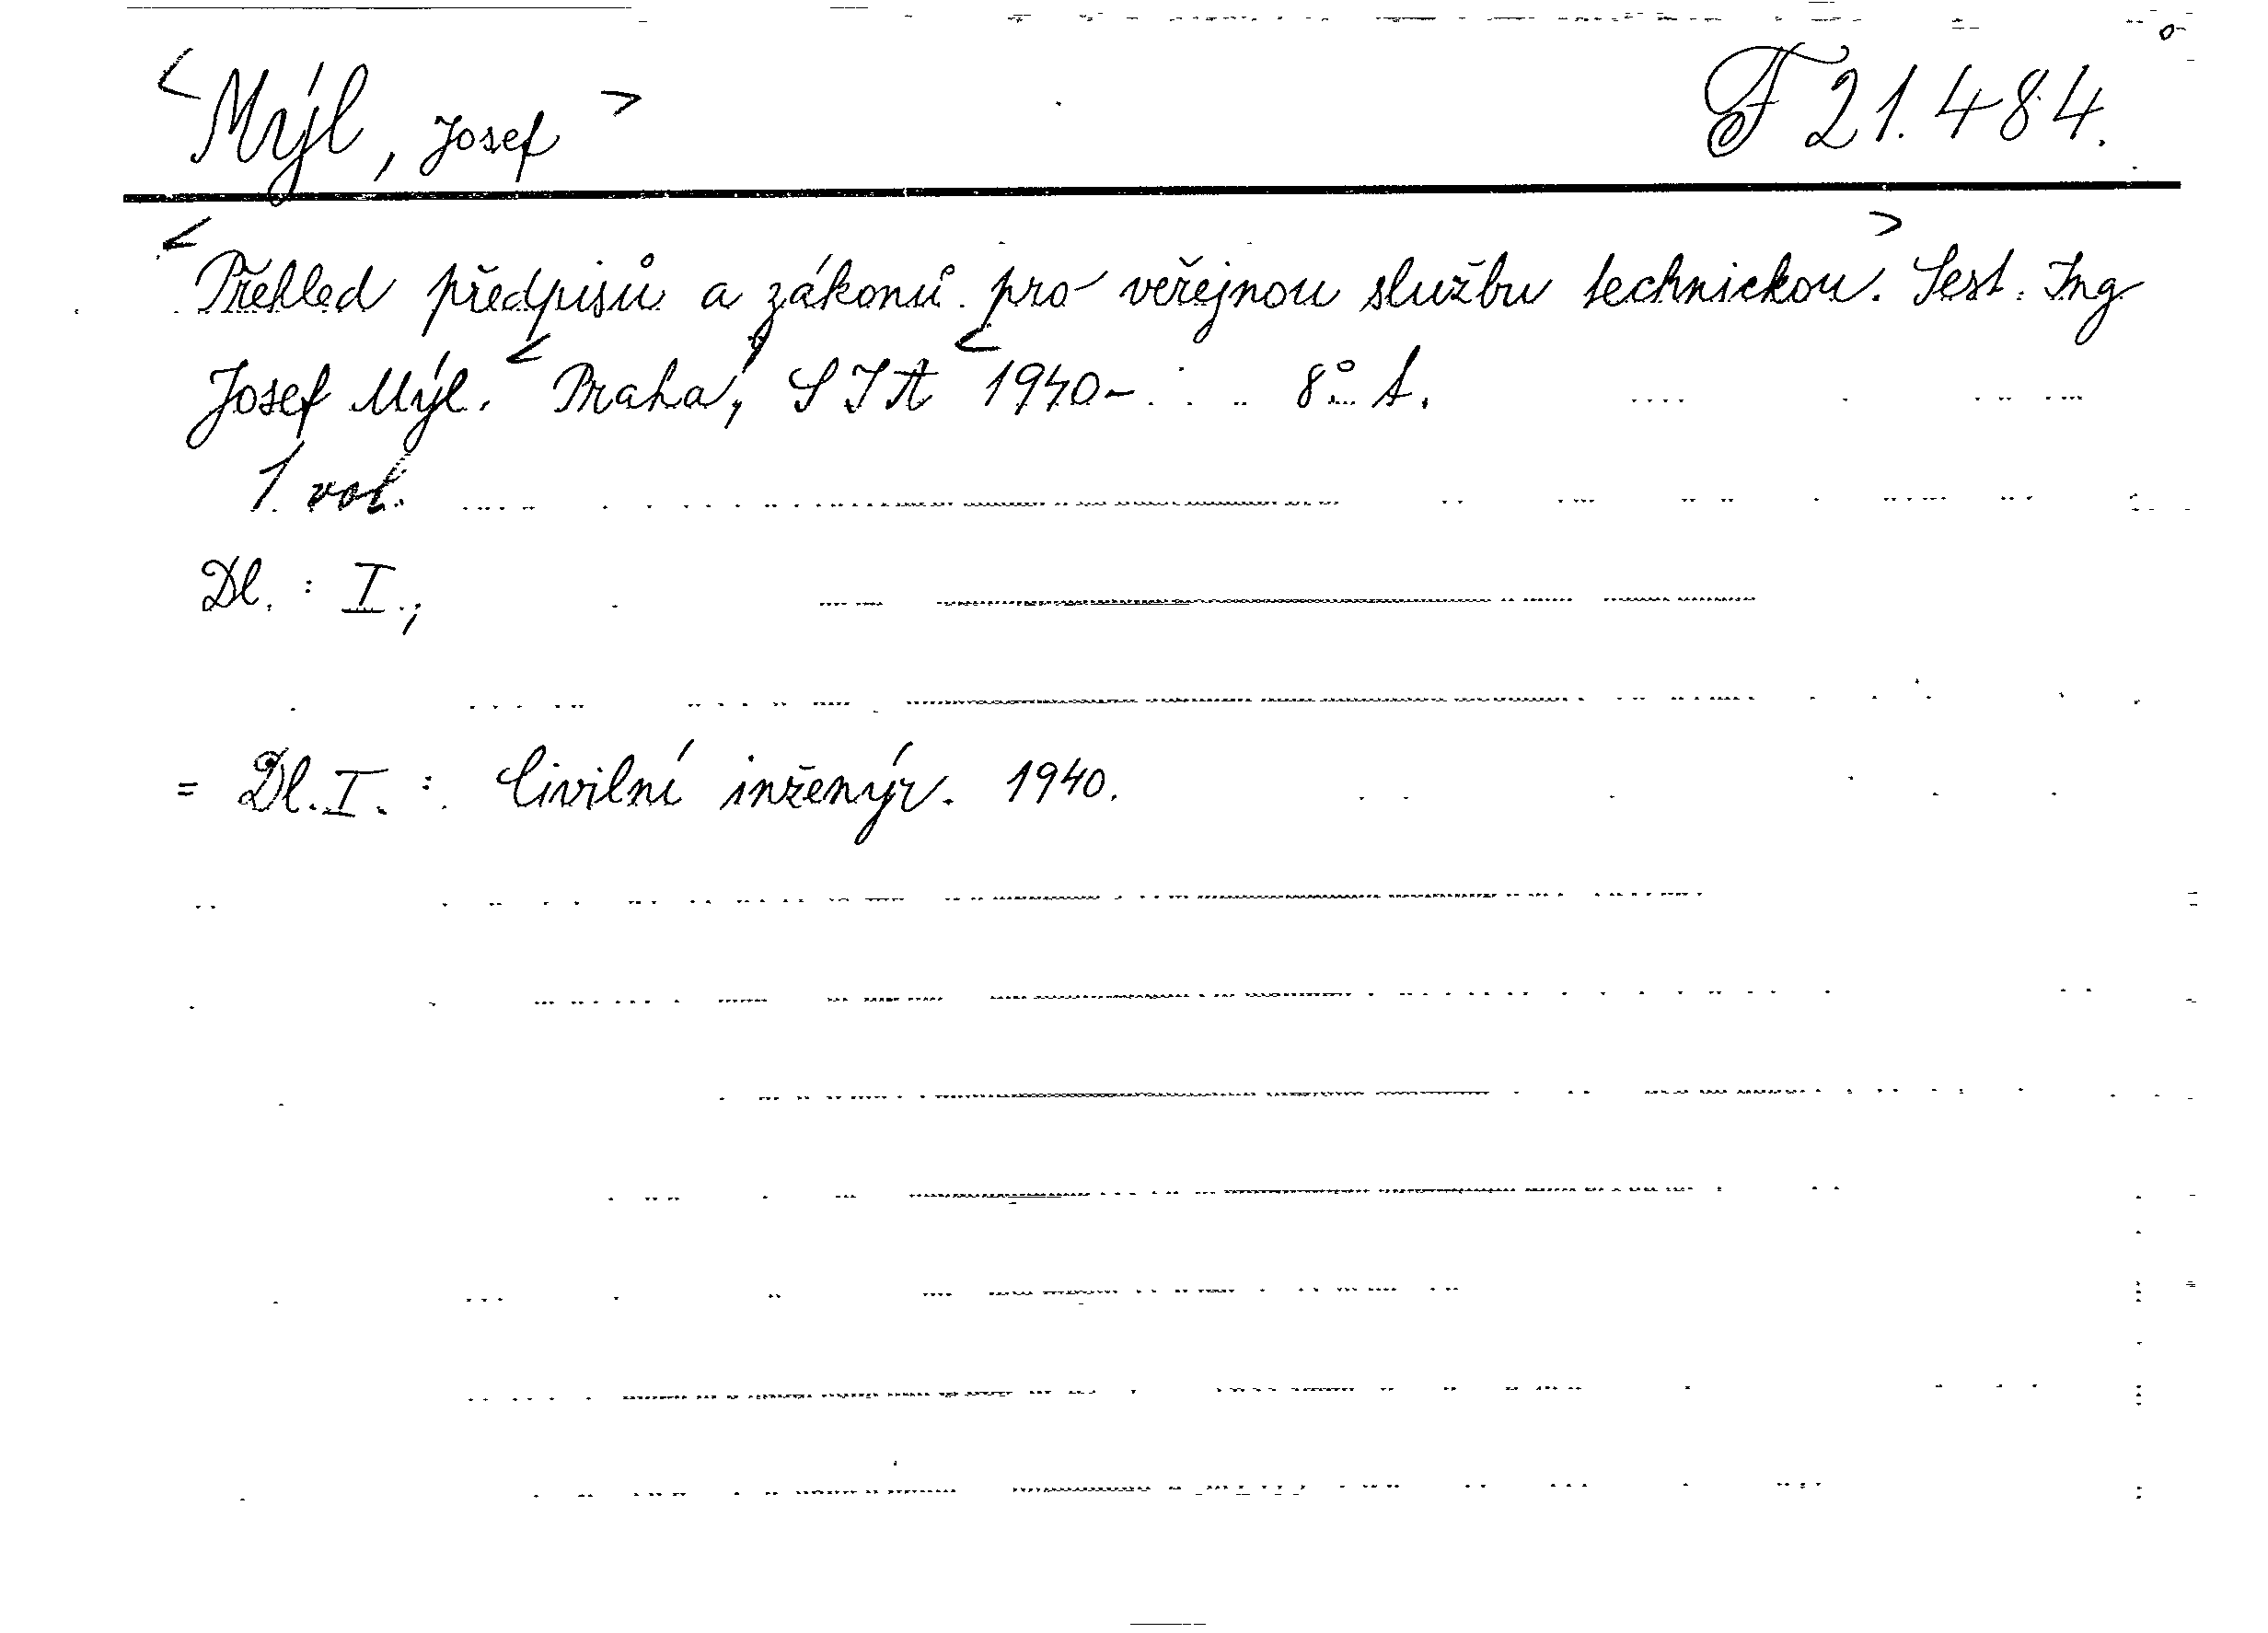 <Mýl, Josef> F 21.484.
<Přehled předpisů a zákonů pro veřejnou službu technickou.> Sest. Ing
Josef Mýl. <Praha, SIA <1940- 8° A.
1 vol.
Dl. : I.,
= Dl. I. : Civilní inženýr. 1940.